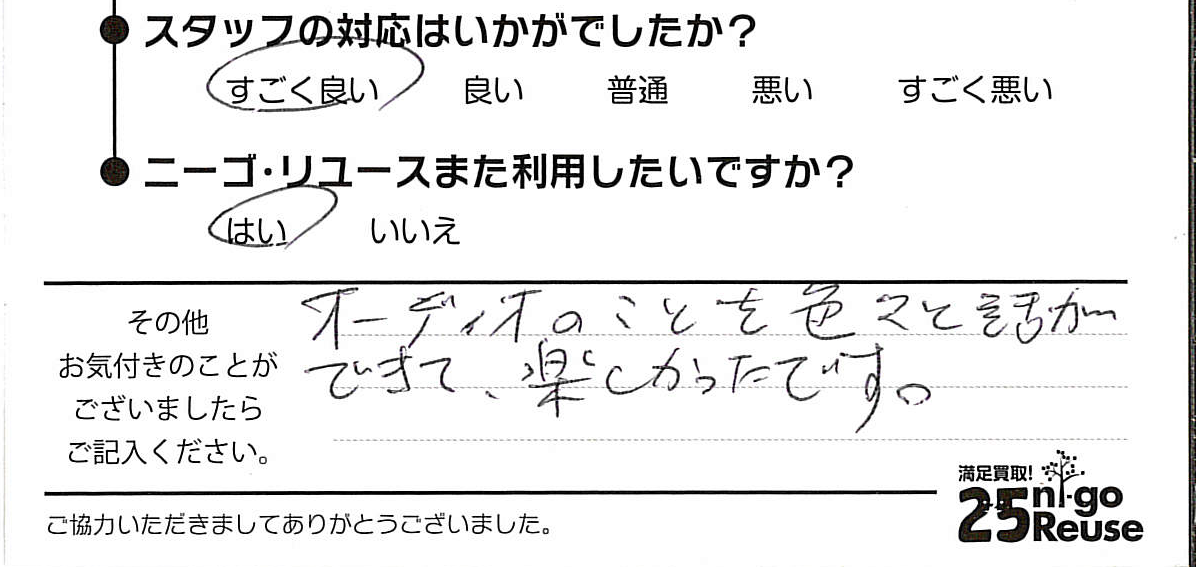 スタッフの対応はいかがでしたか？
すごく良い 良い 普通 悪い すごく悪い
ニーゴ・リユースまた利用したいですか？
はい いいえ
その他
お気付きのことが
ございましたら
ご記入ください。
オーディオのことを色々と話が
できて、楽しかったです。
満足買取!
25 ni-go
Reuse
ご協力いただきましてありがとうございました。